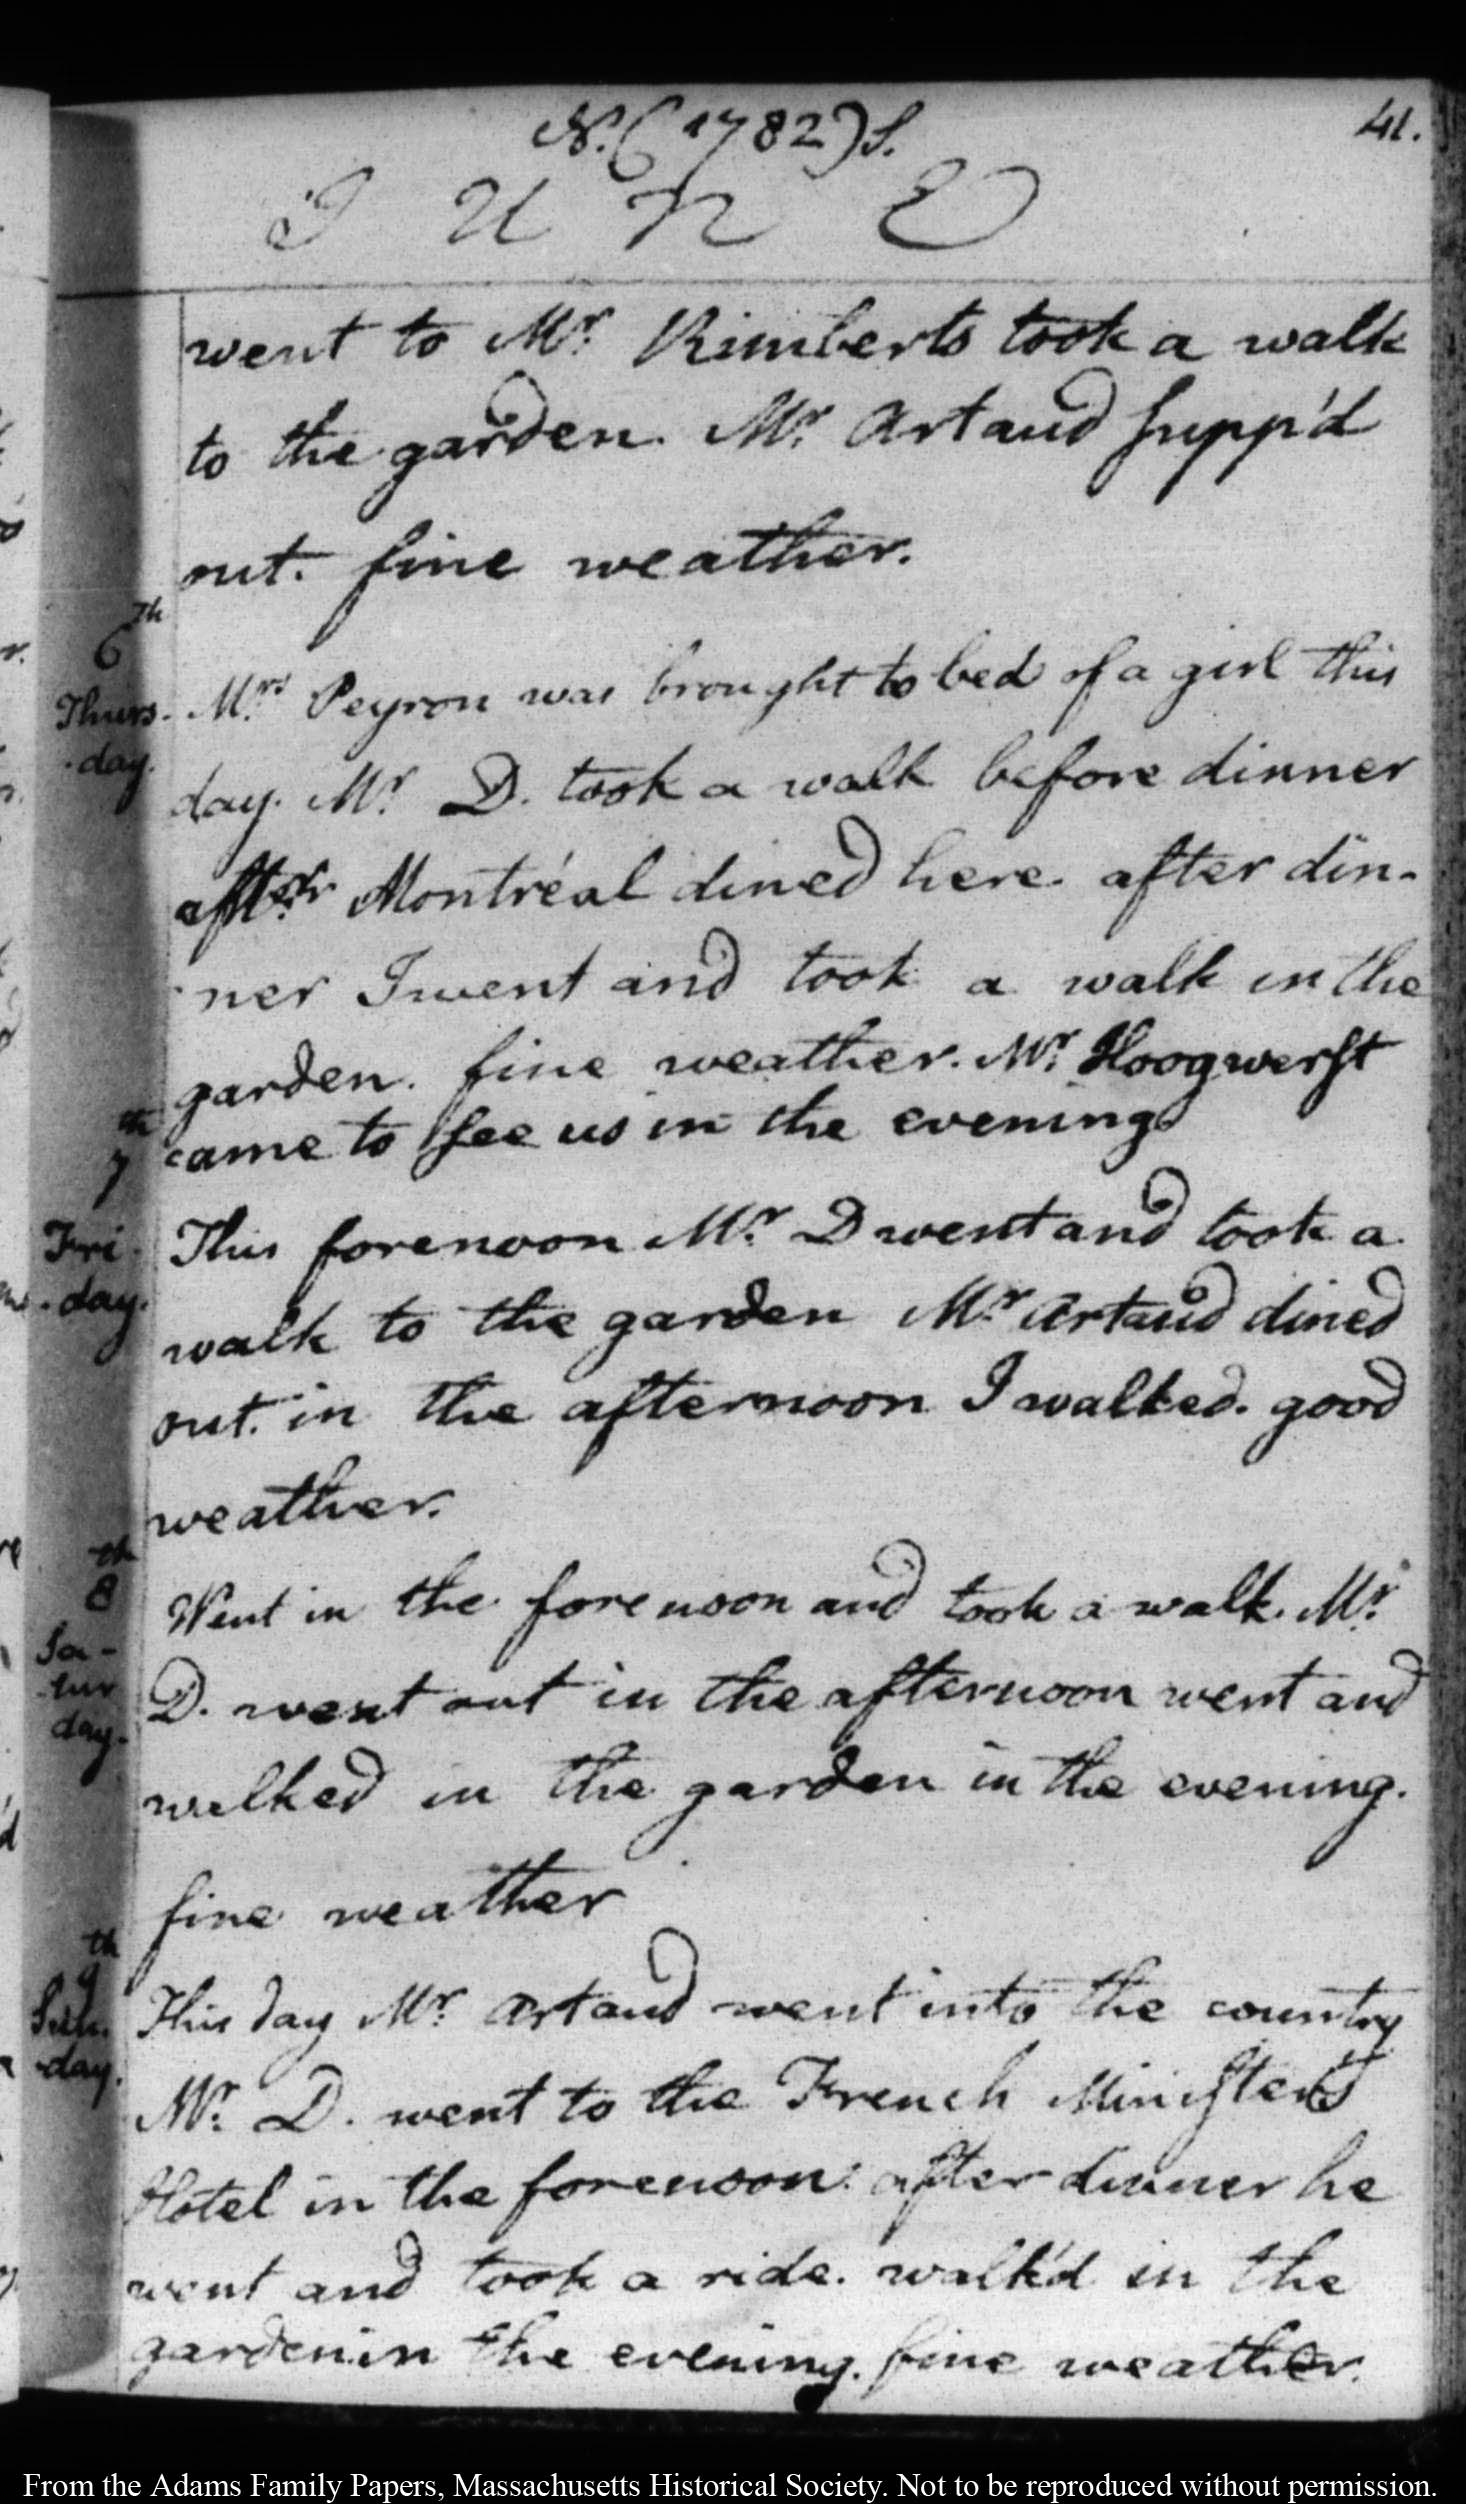 N. (1782) S.
41.
J U N E
went to Mr. Rimberts took a walk
to the garden. Mr. Artaud supp'd
out. fine weather.
6th
Thurs-
-day.
Mrs. Peyron was brought to bed of a girl this
day. Mr. D. took a walk before dinner
Montréal dined here. after din-
-ner I went and took a walk in the
garden. fine weather. Mr. Hoogwerst
came to see us in the evening
7th
Fri-
-day.
This forenoon Mr. D went and took a
walk to the garden Mr. Artaud dined
out. in the afternoon I walked. good
weather.
8th
Sa-
-tur
day.
Went in the forenoon and took a walk. Mr.
D. went out in the afternoon went and
walked in the garden in the evening.
fine weather
9th
Sun-
-day.
This day Mr. Artaud went into the country
Mr. D. went to the French Ministers
Hotel in the forenoon. after dinner he
went and took a ride. walk'd in the
garden in the evening. fine weather.
From the Adams Family Papers, Massachusetts Historical Society. Not to be reproduced without permission.